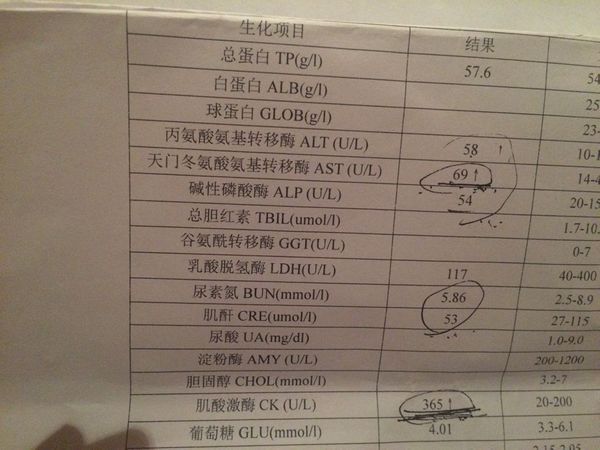 生化项目 结果
总蛋白 TP(g/l) 57.6 54
白蛋白 ALB(g/l) 25
球蛋白 GLOB(g/l) 23-
丙氨酸氨基转移酶 ALT (U/L) 58 ↑ 10-1
天门冬氨酸氨基转移酶 AST (U/L) 69 ↑ 14-4
碱性磷酸酶 ALP (U/L) 54 20-15
总胆红素 TBIL(umol/l) 1.7-10.
谷氨酰转移酶 GGT(U/L) 0-7
乳酸脱氢酶 LDH(U/L) 117 40-400
尿素氮 BUN(mmol/l) 5.86 2.5-8.9
肌酐 CRE(umol/l) 53 27-115
尿酸 UA(mg/dl) 1.0-9.0
淀粉酶 AMY (U/L) 200-1200
胆固醇 CHOL(mmol/l) 3.2-7
肌酸激酶 CK (U/L) 365 ↑ 20-200
葡萄糖 GLU(mmol/l) 4.01 3.3-6.1
2.15-2.95